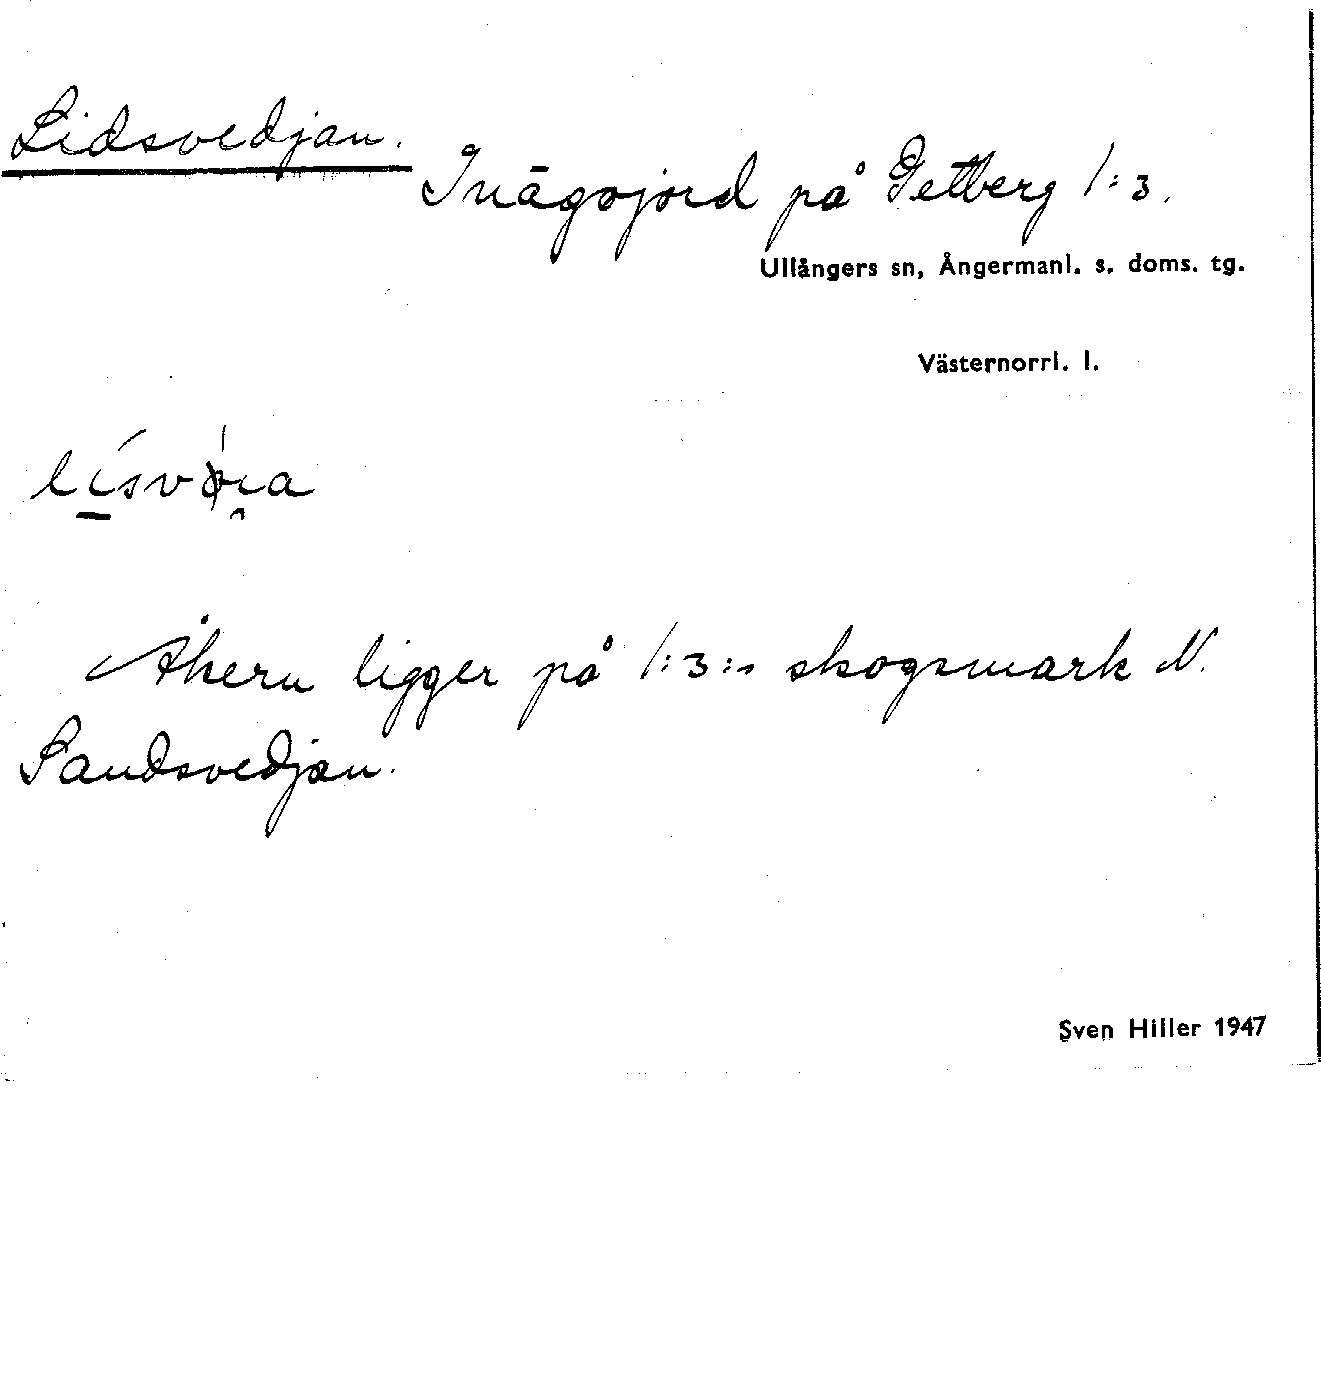 Lidsvedjan.
Inägojord på Getberg 1:3.
Ullångers sn, Ångermanl. s. doms. tg.
Västernorrl. l.
Åkern ligger på 1:3:s skogsmark N.
Sandsvedjan.
Sven Hiller 1947